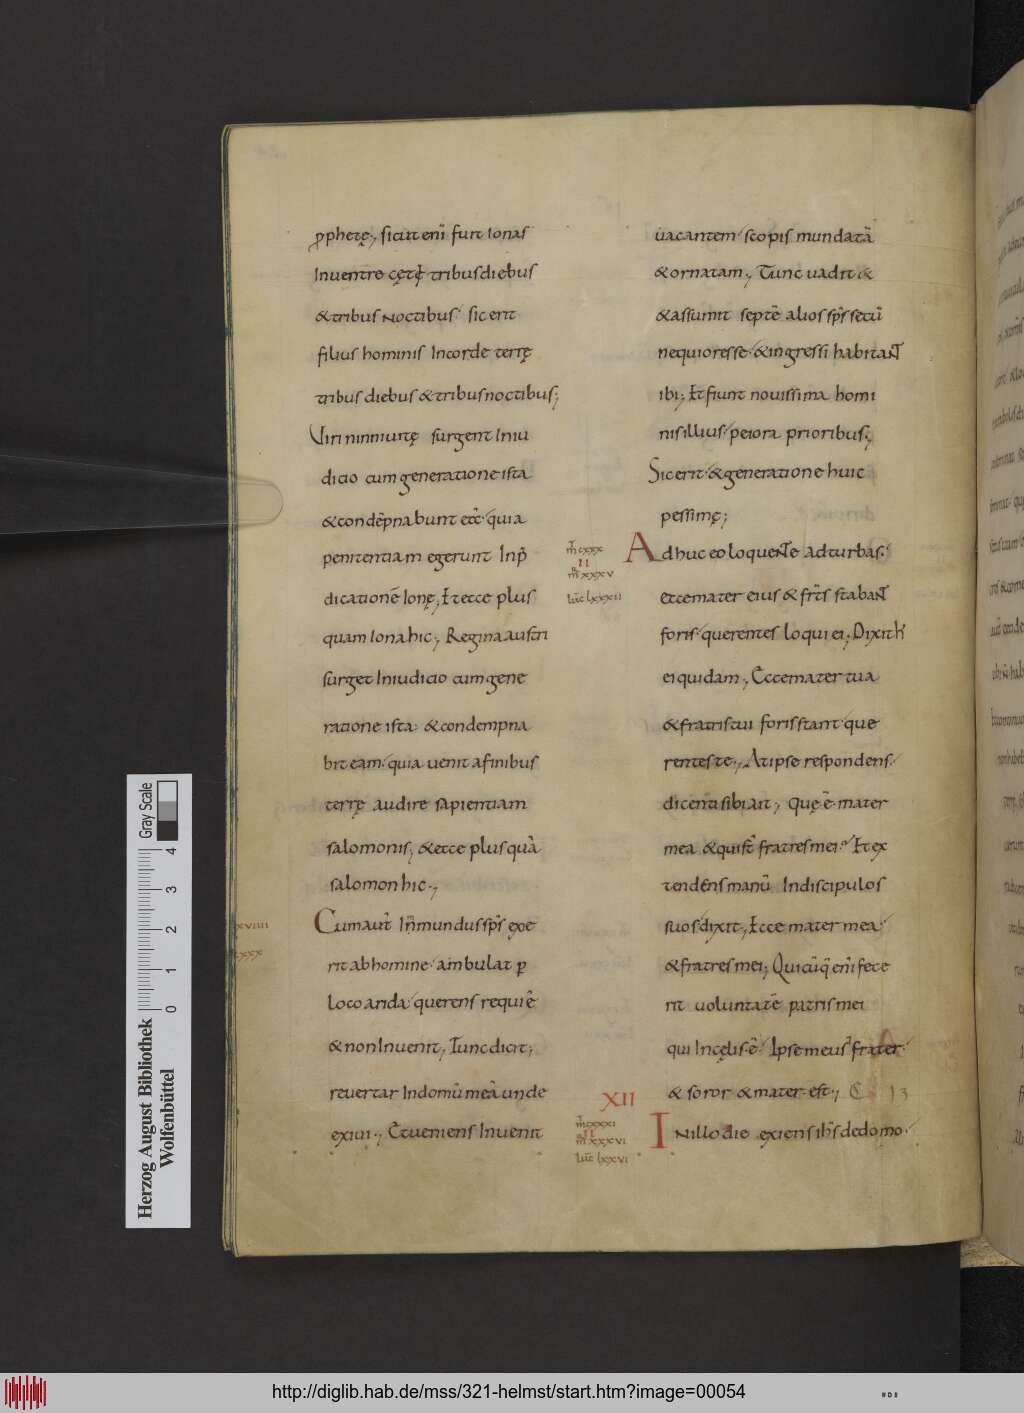 ꝓphetę; sicut eni̅ fuit ionas
Inuentre cętẹ tribusdiebus
&tribus noctibus sic erit
filius hominis Incorde terrę
tribus diebus &tribusnoctibus;
Viri niniuitę surgent Iniu
dicio cumgeneratione ista
&conde̅pnabunt quia
penitentiam egerunt Inp̅
dicatione̅ Ionę; Etecce plus
quam Ionahic; Reginaaustri
surget Iniudicio cumgene
ratione ista &condempna
bit eam quia uenit afinibus
terrę audire sapientiam
salomonis; &ecce plusqua̅
salomon hic;
Cumaut̅ In̅mundussp̅s exie
rit abhomine ambulat ꝑ
locoarida querens requie̅
&nonInuenit; Tuncdicit;
reuertar Indomu̅ mea̅ unde
exiui; Etueniens Inuenit
xviiii
xxx
uacantem scopis mundata̅
&ornatam; Tunc uadit &
&assumit septe̅ aliossp̅s secu̅
nequioresse &ingressi habitant
ibi; Etfiunt nouissima homi
nisillius peiora prioribus;
Sicerit &generatione huic
pessimę;
m̅t cxxx
II
m̅r xxxv
luc̅ lxxxii
Adhuc eo loquente adturbas
eccemater eius & fr̅s stabant
foris querentes loqui ei; Dixit
eiquidam; Eccemater tua
&fratrestui forisstant que
renteste; Atipse respondens
dicentisibiait; Quę e̅ mater
mea &quis̅ fratresmei Etex
tendens manu̅ Indiscipulos
suosdixit; Ecce mater mea
&fratres mei; Quicu̅q̅ eni̅ fece
rit uoluntate̅ patris mei
qui Incęlis e̅ Ipsemeus frater
& soror &mater est; C 13
XII
m̅t cxxxi
II
m̅r xxxvi
luc̅ lxxvi
Inillo die exiens ih̅s dedomo
Herzog August Bibliothek
Wolfenbüttel
0 1 2 3 4
Gray Scale
http://diglib.hab.de/mss/321-helmst/start.htm?image=00054